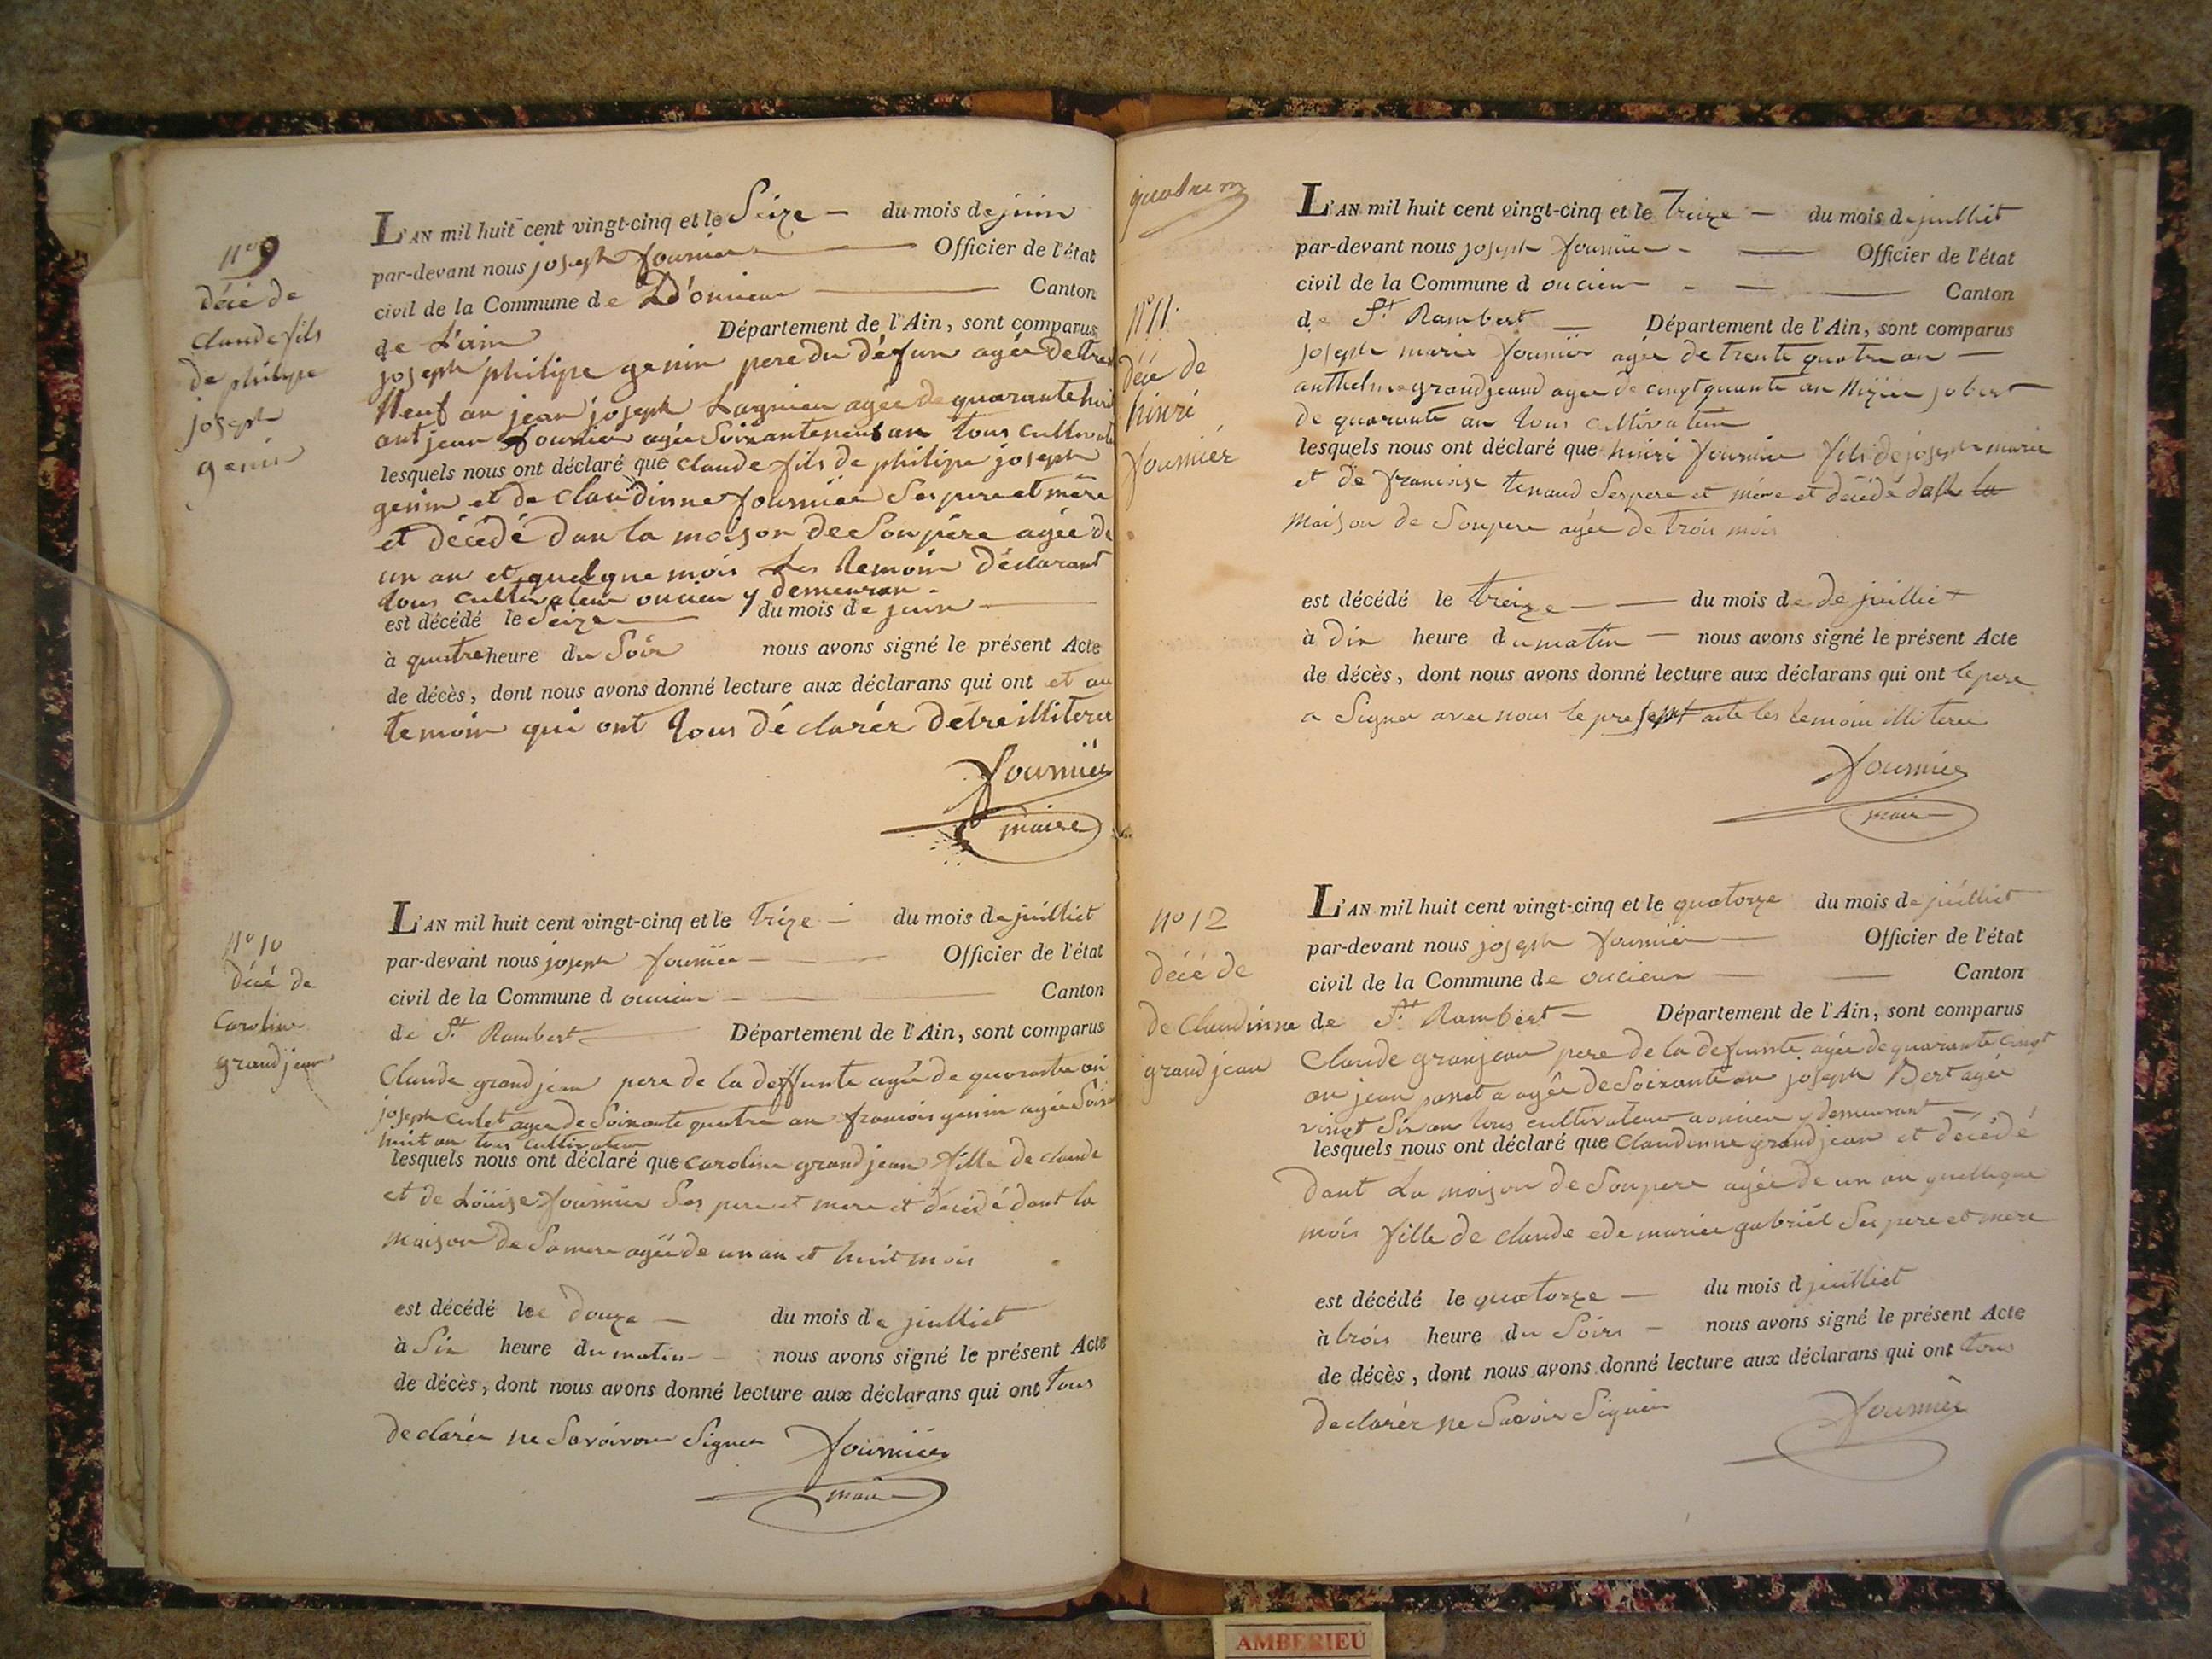 nº 9
décé de
Claude fils
de philipe
joseph
genin
L'AN mil huit cent vingt-cinq et le Seize — du mois de juin
par-devant nous joseph fournier — Officier de l'état
civil de la Commune de D'oncieu — Canton
de L'ain Département de l'Ain, sont comparus
joseph philipe genin pere du défun agée de trei
Neuf an jean joseph Lagnieu agée de quarante huit
ant jean fournier agée Soixanteneuf an tous cultivat
lesquels nous ont déclaré que Claude fils de philipe joseph
genin et de Claudinne fourniée Ses pere et mère
et décédé dan la moison de Son père agée de
un an et quelque mois Les temoin déclarant
tous cultivateur oncieu y demeuran
est décédé le Seize — du mois de juin —
à quatre heure du Soir nous avons signé le présent Acte
de décès, dont nous avons donné lecture aux déclarans qui ont et au
temoin qui ont tous déclarér détre illiterer
fourniér
maire
nº 10
décé de
Caroline
grandjean
L'AN mil huit cent vingt-cinq et le tréze — du mois de juilliet
par-devant nous joseph fourniée — Officier de l'état
civil de la Commune d oncieu — Canton
de St Rambert — Département de l'Ain, sont comparus
Claude grandjean pere de la deffunte agée de quarante an
joseph culet agee de Soixante quatre an francois genin agée Soix
huit an tous cultivateur
lesquels nous ont déclaré que caroline grandjean fille de claude
et de Loüise fournier Ses pere et mere et décédé dant la
maison de Samere agée de un an et huit mois
est décédé le douze — du mois de juilliet
à Six heure du matin — nous avons signé le présent Acte
de décès, dont nous avons donné lecture aux déclarans qui ont tous
declarée ne Savoivoir Signer
fourniér
maire
nº 11.
décé de
hinri
fourniér
L'AN mil huit cent vingt-cinq et le Treize — du mois de juilliet
par-devant nous joseph fournier — Officier de l'état
civil de la Commune d oncieu — Canton
de St Rambert — Département de l'Ain, sont comparus
joseph marie fourniér agée de trente quatre an —
anthelme grandjeand agee de cingtquante an jobert
de quarante an tous cultivateur
lesquels nous ont déclaré que hinri fournier fils de joseph marie
et de francoise tenaud Ses pere et mére et décédé dans la
maison de Sonpere agée de trois mois
est décédé le treize — du mois de de juilliet
à dix heure du matin — nous avons signé le présent Acte
de décès, dont nous avons donné lecture aux déclarans qui ont le pere
a Signer avec nous le present acte les temoin illiteree
fourniér
maire
nº 12
décé de
de Claudinne
grandjean
L'AN mil huit cent vingt-cinq et le quatorze du mois de juilliet
par-devant nous joseph fourniér — Officier de l'état
civil de la Commune de oncieux — Canton
de St Rambert — Département de l'Ain, sont comparus
Claude granjean pere de la defunte agée de quarante cingt
an jean agée de Soixante an joseph Bert agée
vingt Six an tous cultivateur a oncieu y demeurant
lesquels nous ont déclaré que Claudinne grandjean et décédé
dant La moison de Sonpere agée de un an quellque
mois fille de claude e de mariee gabriel Ses pere et mere
est décédé le quatorze — du mois d juilliet
à trois heure du Soirs — nous avons signé le présent Acte
de décès, dont nous avons donné lecture aux déclarans qui ont tous
declarér ne Savoir Signer
fourniér
AMBERIEU